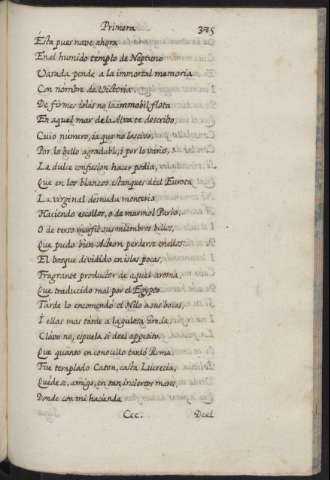 Primera 325
Esta pues nave ahora
En el humido templo de Neptuno
Varada pende a la immortal memoria
Con nombre de Victoria
De firmes islas no la immobil flota
En aquel mar de la Alva te describo,
Cuio numero, ia que no lascivo,
Por lo bello agradable, i por lo vario,
La dulce confusion hacer podia,
Que en los blancos estanques del Eurota
La virginal desnuda monteria
Haciendo escollos, o de marmol Pario,
O de terso marfil sus miembros bellos,
Que pudo bien Acteon perderse en ellos.
El bosque dividido en islas pocas,
Fragrante productor de aquel aroma
Que traducido mal por el Egypto
Tarde lo encomendò el Nilo a sus bocas,
I ellas mas tarde a la gulosa Grecia,
Clavo no, espuela sì del appetito,
Que quanto en conocello tardò Roma
Fue templado Caton, casta Lucrecia,
Quedese, amigo, en tan inciertos mares,
Donde con mi hacienda
Ccc. Del